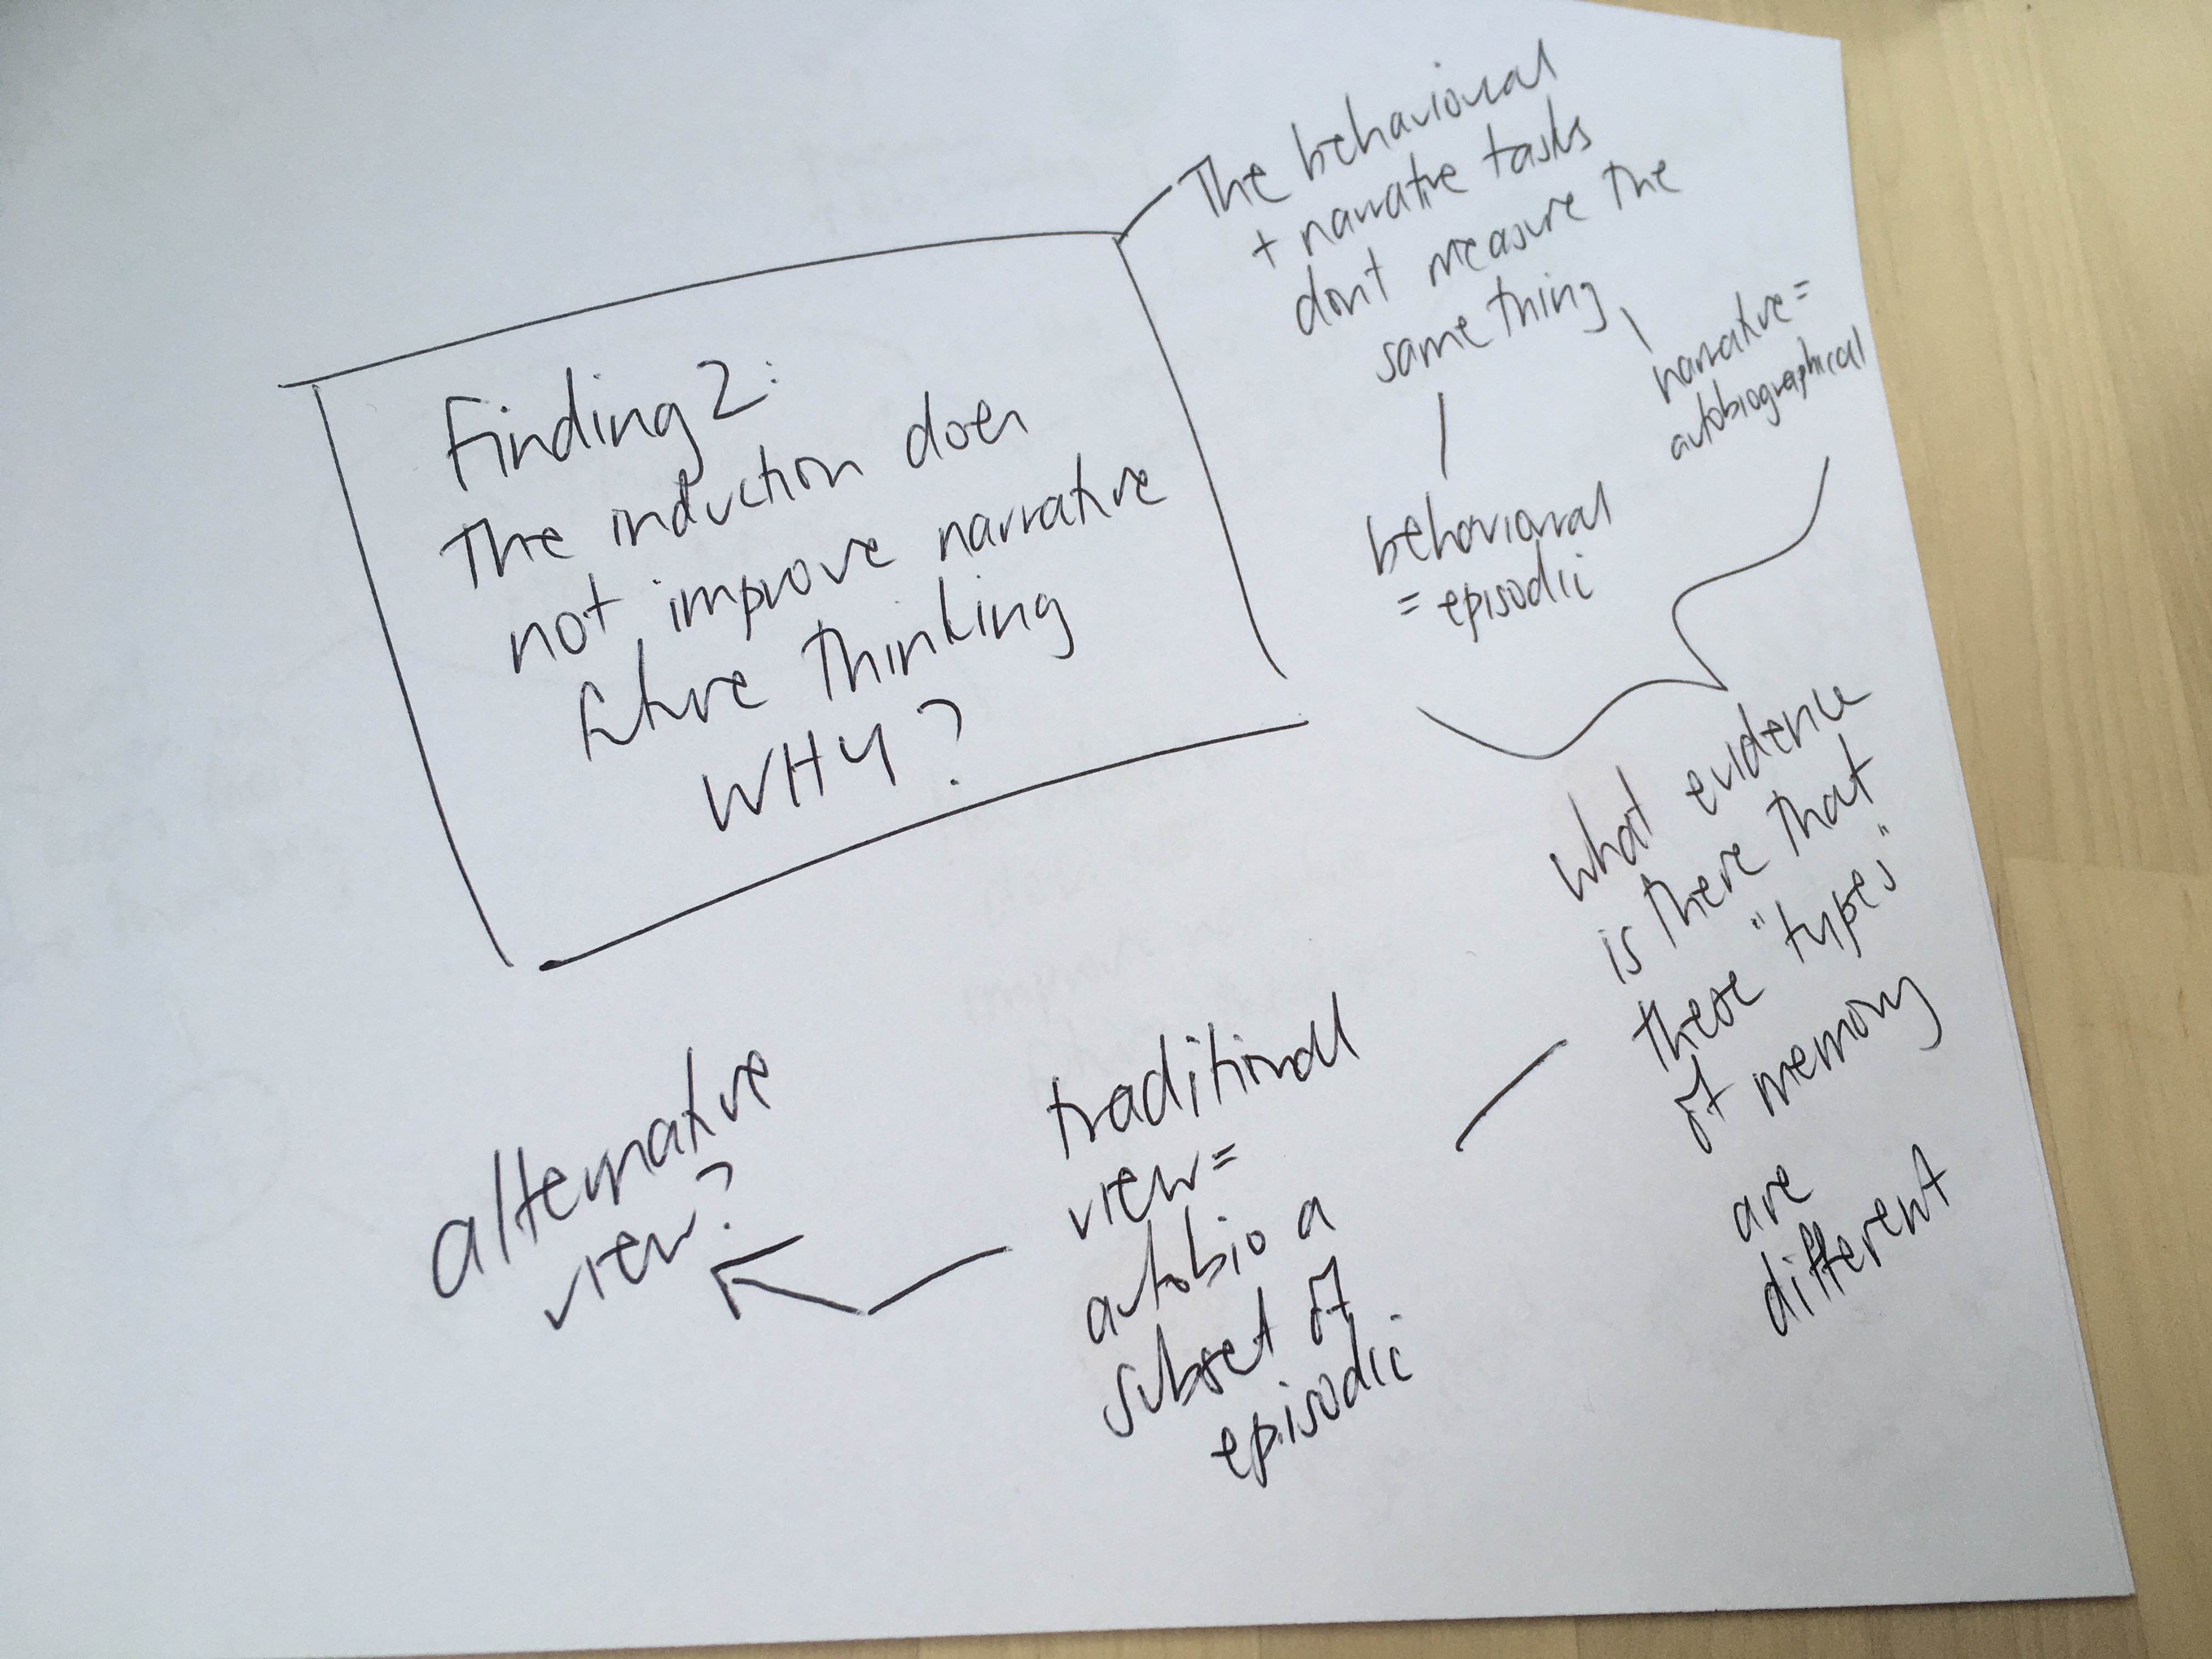 Finding 2:
The induction does
not improve narrative
future thinking
WHY?
The behavioural
+ narrative tasks
dont measure the
same thing
behavioural
= episodic
narrative =
autobiographical
what evidence
is there that
these "types"
of memory
are
different
traditional
view =
autobio a
subset of
episodic
alternative
view?